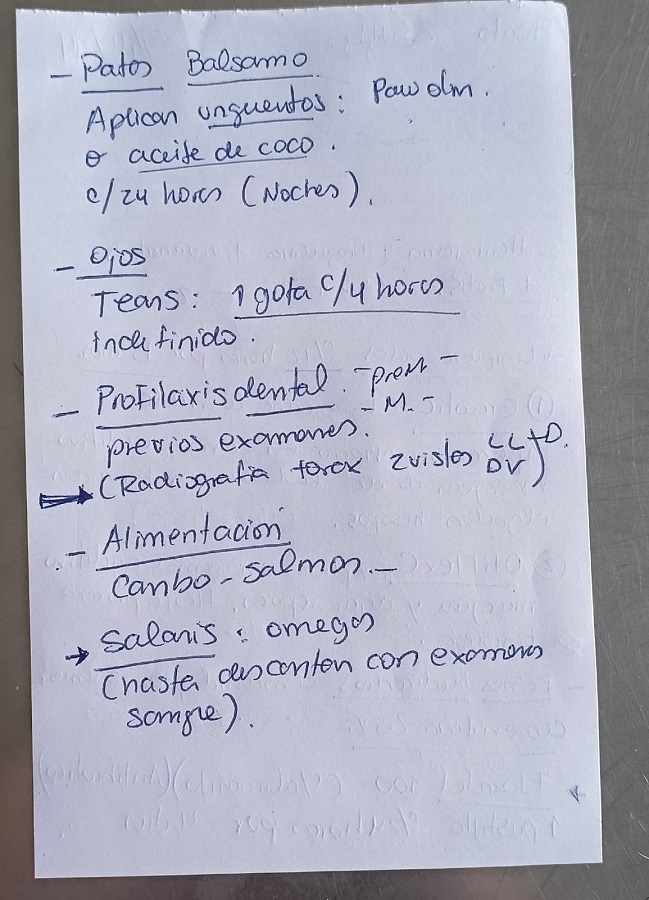 - Patos Balsamo
Aplicar unguentos: Paw
o aceite de coco.
c/24 horas (Noches).
- Ojos
Tears: 1 gota c/4 horas
indefinido.
- Profilaxis dental.
previos examenes. - M. -
(Radiografia torax 2 vistas LL+D.
DV)
- Alimentacion
Cambo - Salmon. -
Salaris: omegas
(hasta descartar con examenes
sangre).